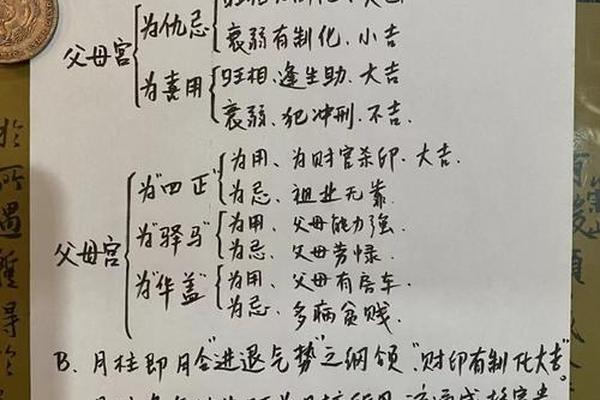 父母宫
为仇忌
衰弱有制化、小吉
为喜用
旺相、逢生助、大吉
衰弱、犯冲刑、不吉.
父母宫
为"四正"
为用、为财官杀印、大吉.
为忌、祖业无靠
为"驿马"
为用、父母能力强.
为忌、父母劳碌.
为"华盖"
为用、父母有房车.
为忌、多病贫贱.
B. 月柱即月令"进退气势"之纲领"财印有制化大吉"。
於
所
遇
得
於